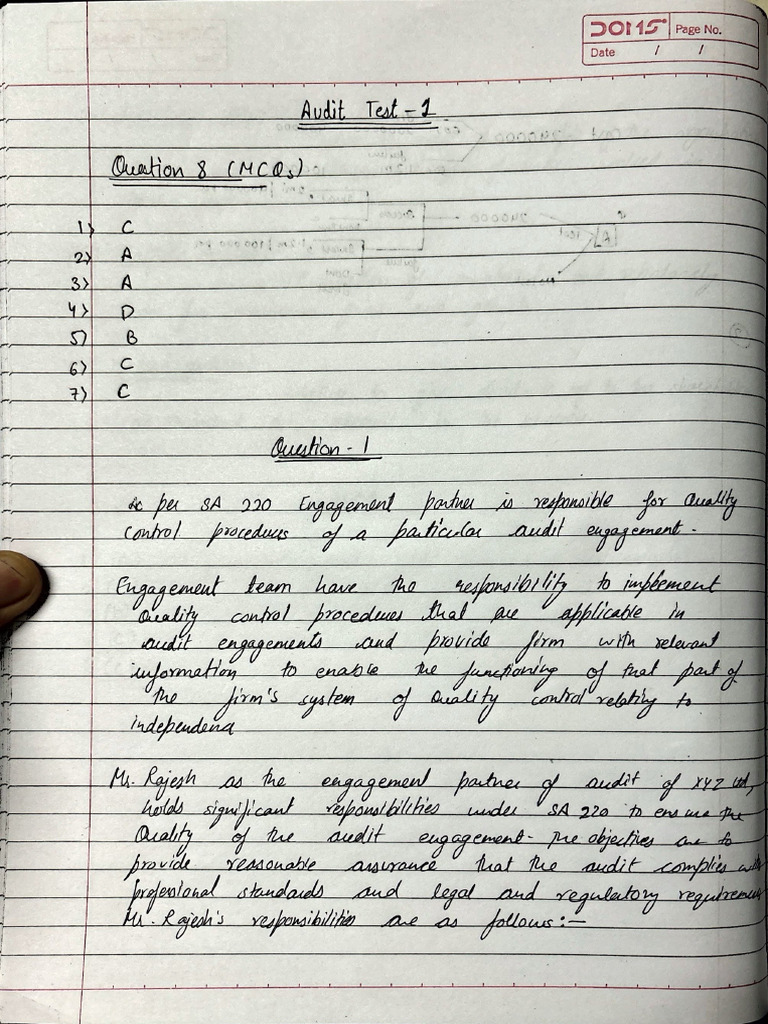 DOMS Page No.
Date / /
Audit Test - 1
Question 8 (MCQs)
1) C
2) A
3) A
4) D
5) B
6) C
7) C
Question - 1
As per SA 220 Engagement partner is responsible for Quality
control procedures of a particular audit engagement.
Engagement team have the responsibility to implement
Quality control procedures that are applicable in
audit engagements and provide firm with relevant
information to enable the functioning of that part of
the firm's system of Quality control relating to
independence
Mr. Rajesh as the engagement partner of audit of XYZ Ltd,
holds significant responsibilities under SA 220 to ensure the
Quality of the audit engagement. The objectives are to
provide reasonable assurance that the audit complies with
professional standards and legal and regulatory requirements
Mr. Rajesh's responsibilities are as follows:-